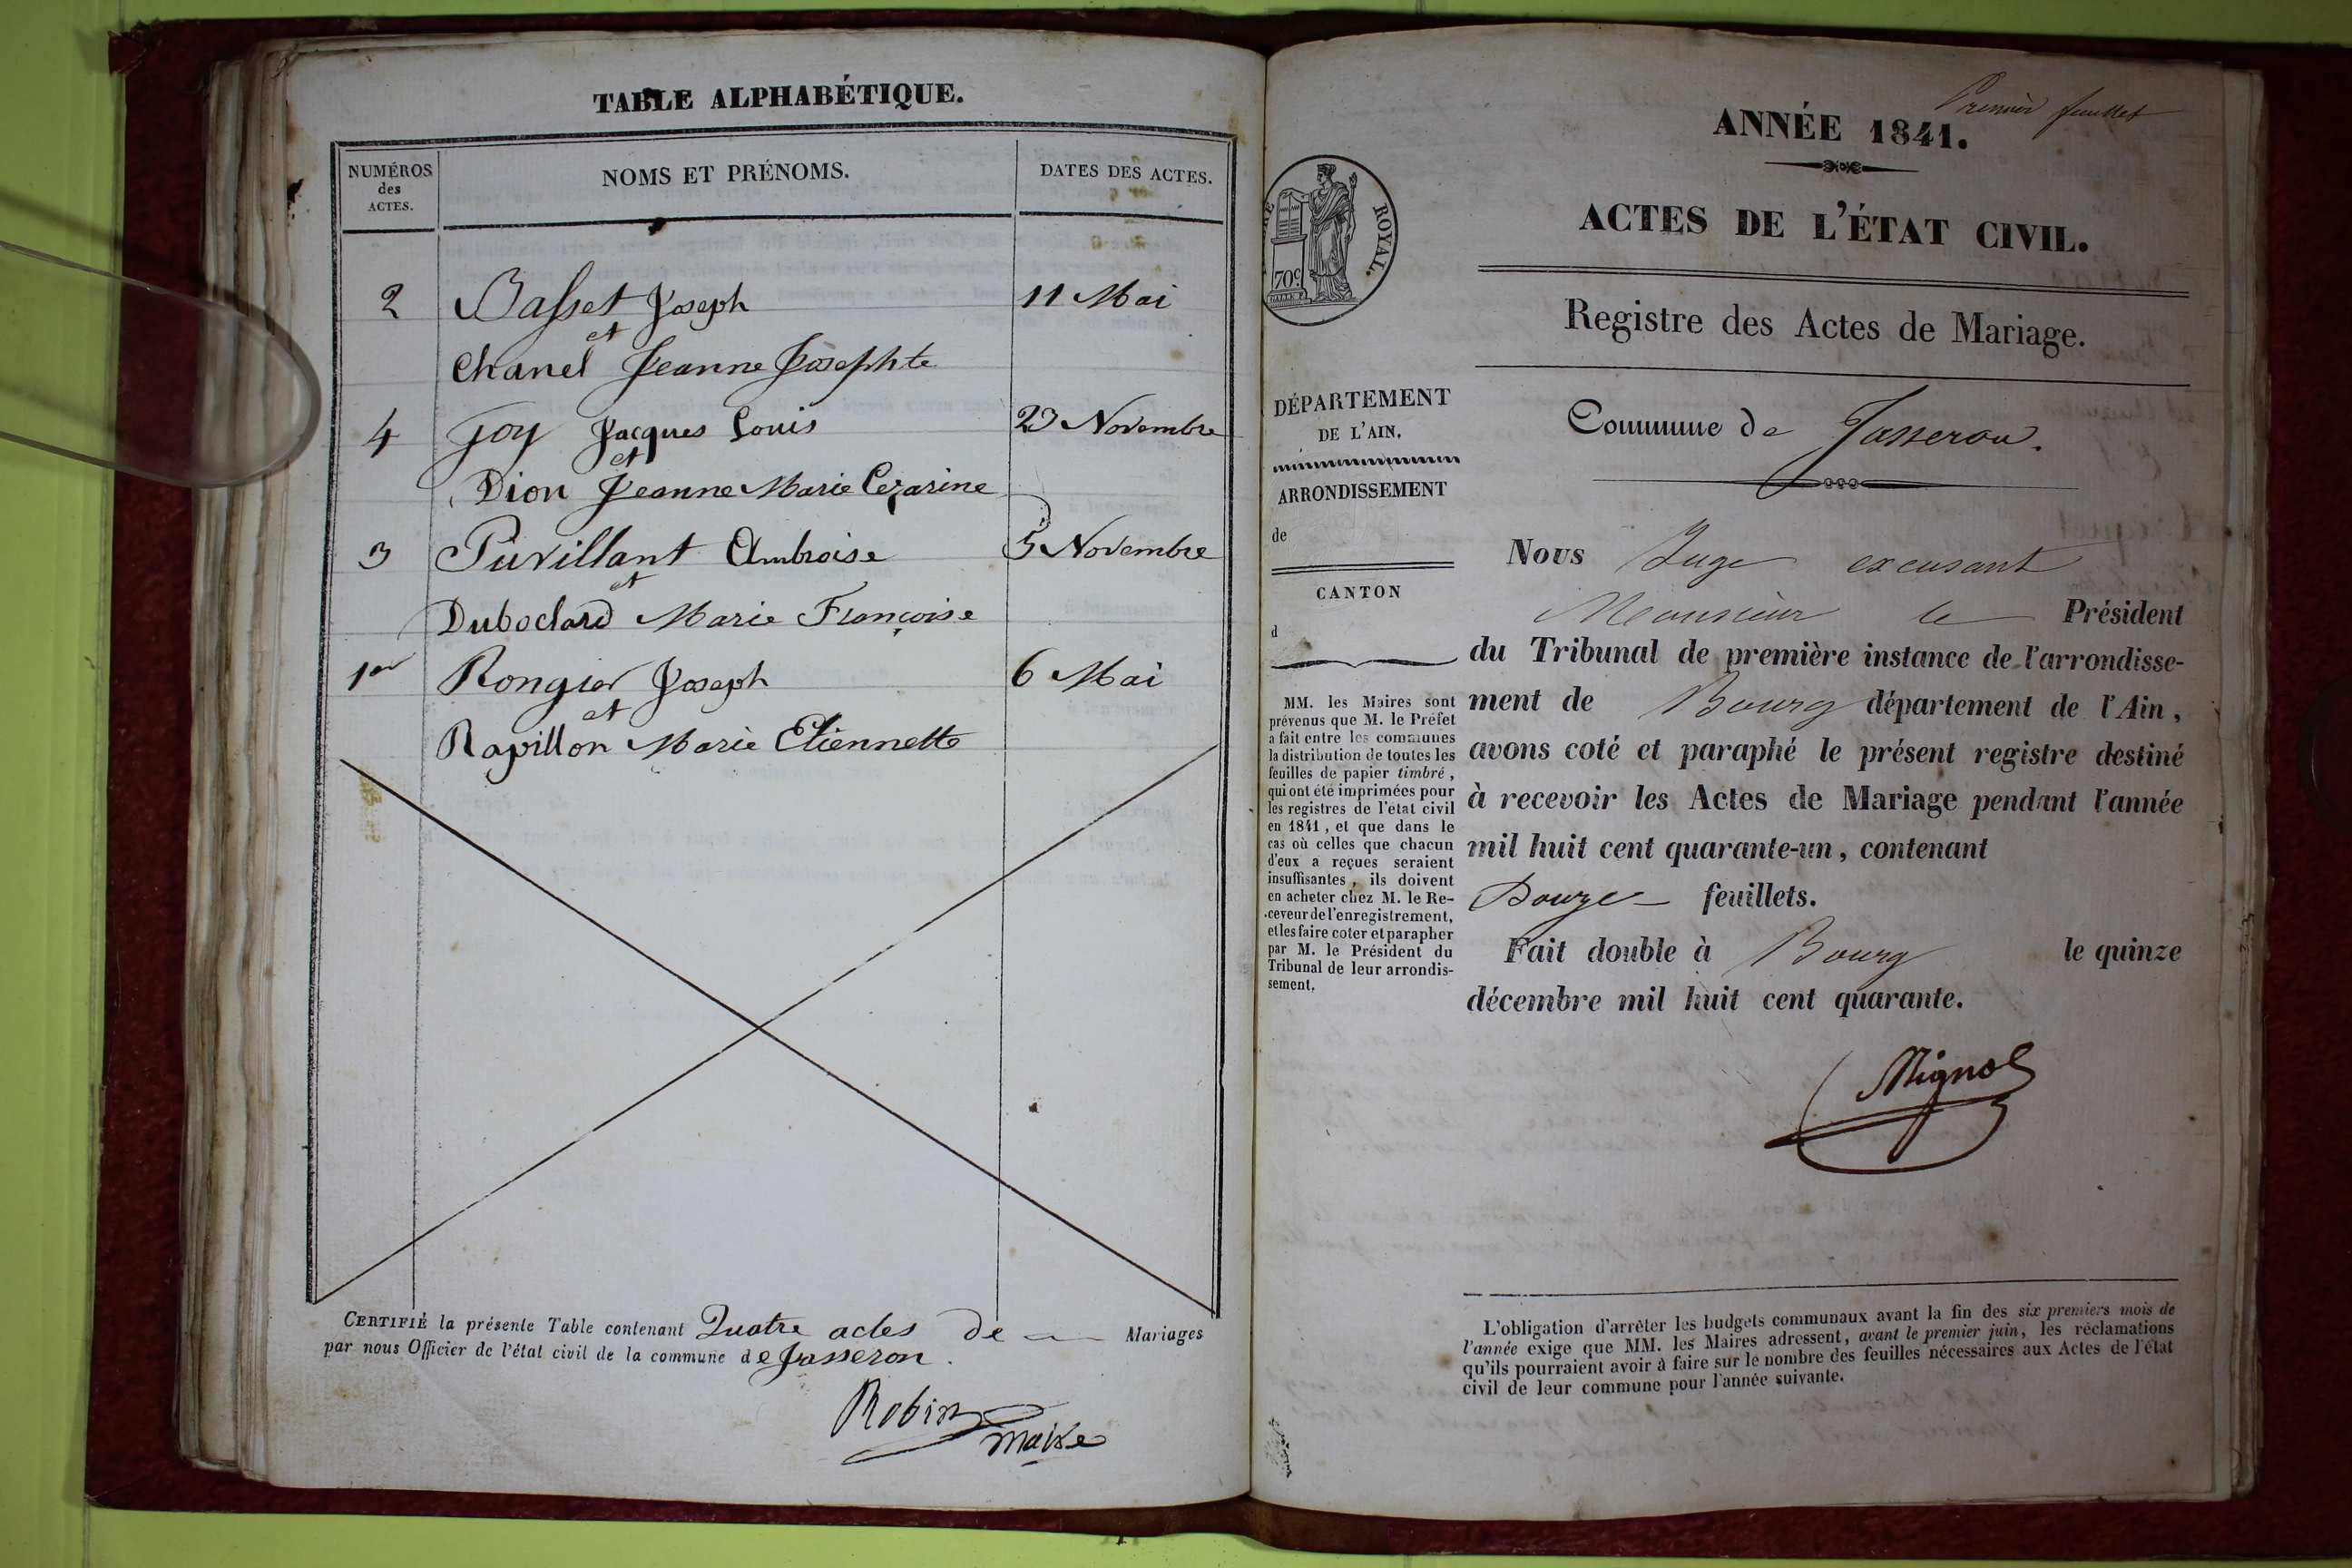 TABLE ALPHABÉTIQUE.
NUMÉROS
des
ACTES.
NOMS ET PRÉNOMS.
DATES DES ACTES.
2 Basset Joseph 11 Mai
et
Chanel Jeanne Josephte
4 Joy Jacques Louis 23 Novembre
et
Dion Jeanne Marie Cezarine
3 Puvillant Ambroise 5 Novembre
et
Duboclard Marie Françoise
1er Rongier Joseph 6 Mai
et
Rapillon Marie Etiennette
CERTIFIÉ la présente Table contenant Quatre actes de Mariages
par nous Officier de l'état civil de la commune de Jasseron.
Robin
maire
Premier feuillet
ANNÉE 1841.
ROYAL.
70c
ACTES DE L'ÉTAT CIVIL.
Registre des Actes de Mariage.
Commune de Jasseron.
DÉPARTEMENT
DE L'AIN.
ARRONDISSEMENT
de
CANTON
d
MM. les Maires sont
prévenus que M. le Préfet
a fait entre les communes
la distribution de toutes les
feuilles de papier timbré,
qui ont été imprimées pour
les registres de l'état civil
en 1841, et que dans le
cas où celles que chacun
d'eux a reçues seraient
insuffisantes, ils doivent
en acheter chez M. le Re-
ceveur de l'enregistrement,
et les faire coter et parapher
par M. le Président du
Tribunal de leur arrondis-
sement.
Nous Juge excusant
Monsieur le Président
du Tribunal de première instance de l'arrondisse-
ment de Bourg département de l'Ain,
avons coté et paraphé le présent registre destiné
à recevoir les Actes de Mariage pendant l'année
mil huit cent quarante-un, contenant
Douze feuillets.
Fait double à Bourg le quinze
décembre mil huit cent quarante.
L'obligation d'arrêter les budgets communaux avant la fin des six premiers mois de
l'année exige que MM. les Maires adressent, avant le premier juin, les réclamations
qu'ils pourraient avoir à faire sur le nombre des feuilles nécessaires aux Actes de l'état
civil de leur commune pour l'année suivante.